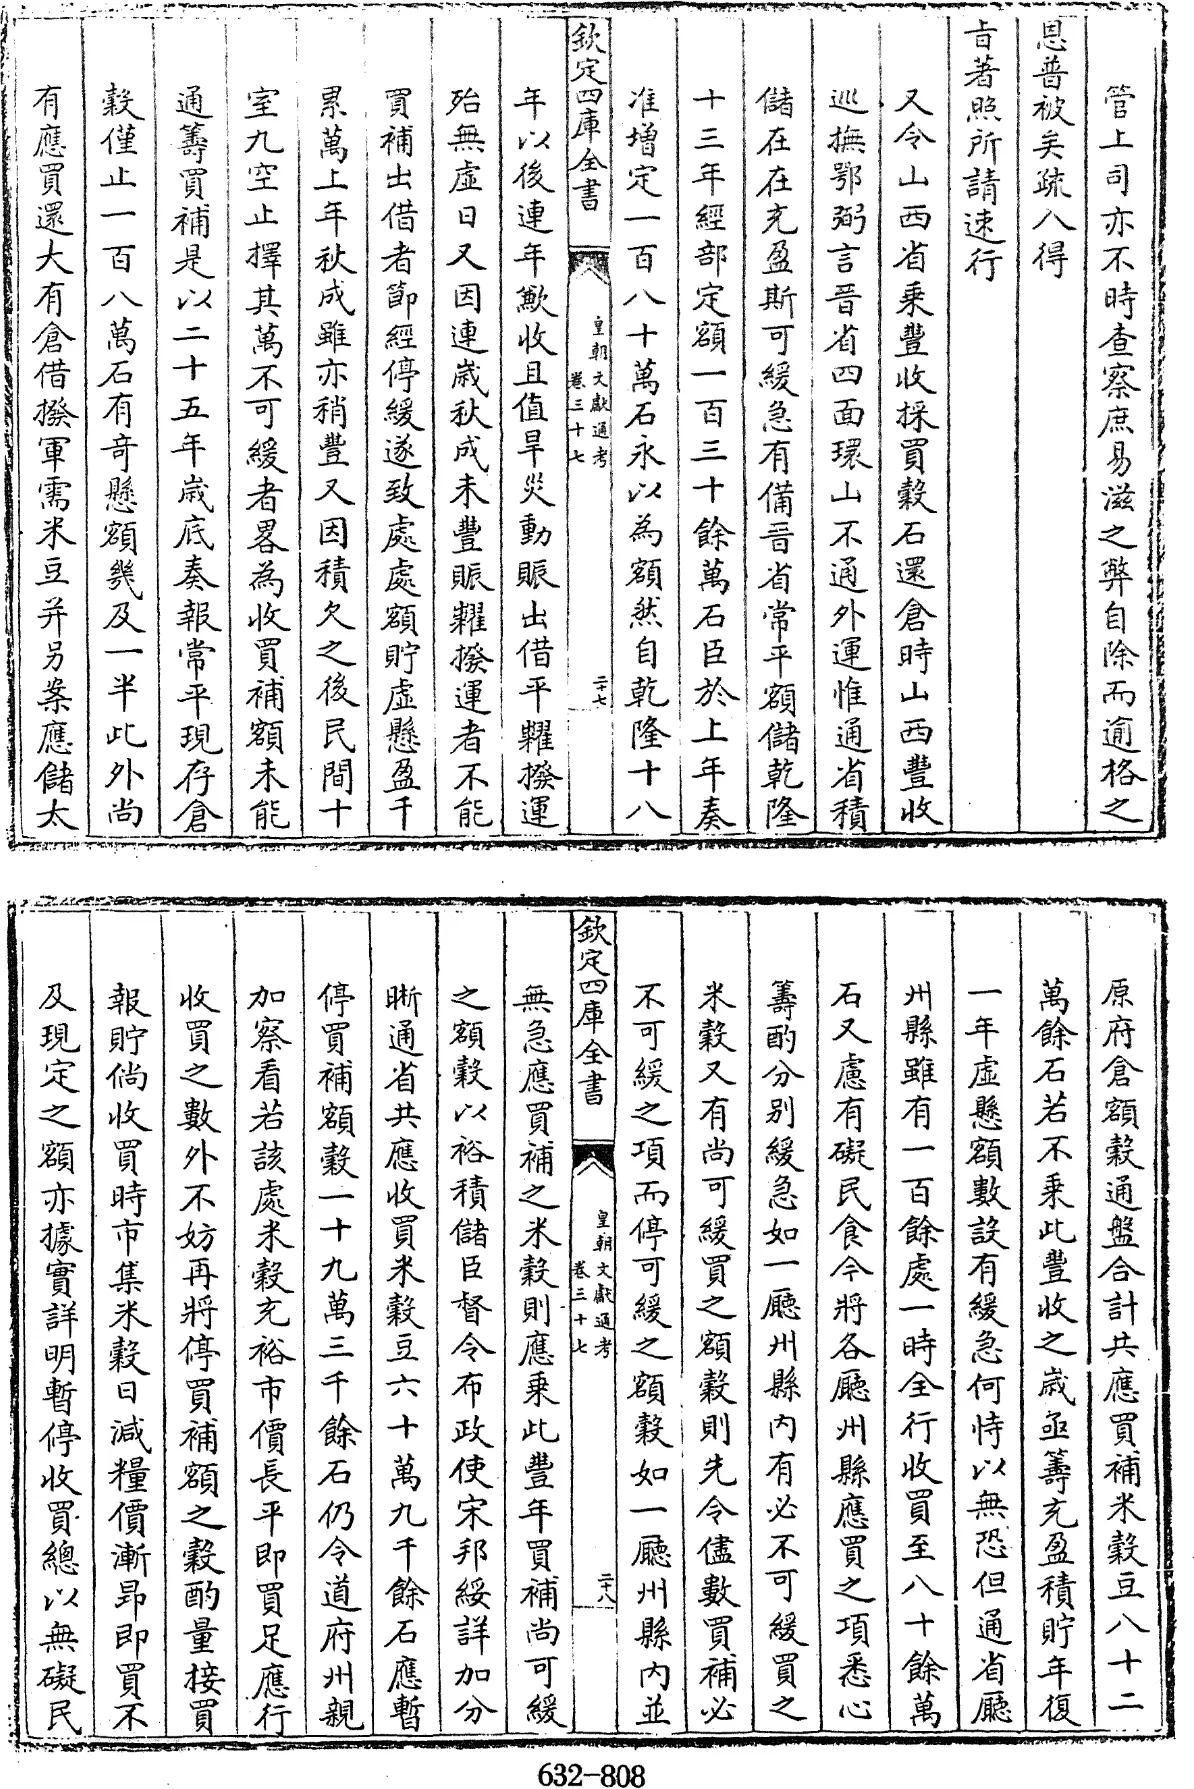 管上司亦不時查察庶易滋之弊自除而逾格之
恩普被矣疏入得
旨著照所請速行
又令山西省乘豐收採買穀石還倉時山西豐收
巡撫鄂弼言晉省四面環山不通外運惟通省積
儲在在充盈斯可緩急有備晉省常平額儲乾隆
十三年經部定額一百三十餘萬石臣於上年奏
准增定一百八十萬石永以為額然自乾隆十八
欽定四庫全書
皇朝文獻通考
卷三十七
二十七
年以後連年歉收且值旱災動賑出借平糶撥運
殆無虛日又因連歲秋成未豐賑糶撥運者不能
買補出借者節經停緩遂致處處額貯虛懸盈千
累萬上年秋成雖亦稍豐又因積欠之後民間十
室九空止擇其萬不可緩者畧為收買補額未能
通籌買補是以二十五年歲底奏報常平現存倉
穀僅止一百八萬石有奇懸額幾及一半此外尚
有應買還大有倉借撥軍需米豆并另案應儲太
原府倉額穀通盤合計共應買補米穀豆八十二
萬餘石若不乘此豐收之歲亟籌充盈積貯年復
一年虛懸額數設有緩急何恃以無恐但通省廳
州縣雖有一百餘處一時全行收買至八十餘萬
石又慮有礙民食今將各廳州縣應買之項悉心
籌酌分別緩急如一廳州縣內有必不可緩買之
米穀又有尚可緩買之額穀則先令儘數買補必
不可緩之項而停可緩之額穀如一廳州縣內並
欽定四庫全書
皇朝文獻通考
卷三十七
二十八
無急應買補之米穀則應乘此豐年買補尚可緩
之額穀以裕積儲臣督令布政使宋邦綏詳加分
晰通省共應收買米穀豆六十萬九千餘石應暫
停買補額穀一十九萬三千餘石仍令道府州親
加察看若該處米穀充裕市價長平即買足應行
收買之數外不妨再將停買補額之穀酌量接買
報貯倘收買時市集米穀日減糧價漸昂即買不
及現定之額亦據實詳明暫停收買總以無礙民
632-808